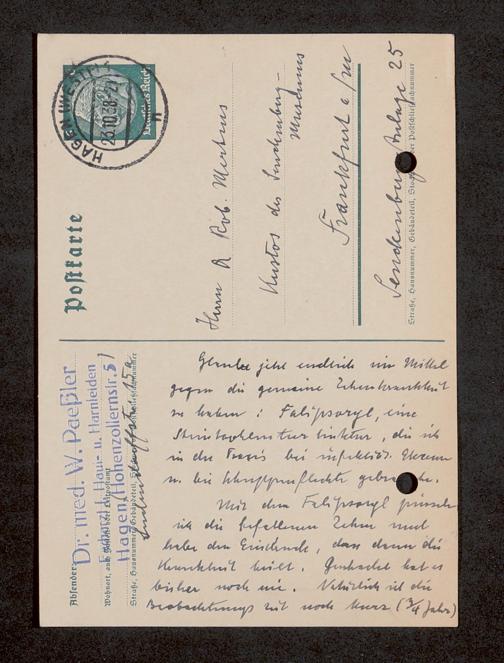 Postkarte
Deutsches Reich
HAGEN (WESTF)
23.10.38
Herrn R Rob. Mertens
Kustos des Senckenberg-
Museums
Frankfurt a/M
Senckenberg Anlage 25
Straße, Hausnummer, Gebäudeteil, Stockwerk oder Postschließfachnummer
Absender:
Dr. med. W. Paeßler
Facharzt f. Haut- u. Harnleiden
Wohnort, auch Zustell- oder Leitpostamt
Hagen, Hohenzollernstr. 5
15a
Straße, Hausnummer, Gebäudeteil, Stockwerk oder Postschließfachnummer
Glaube jetzt endlich ein Mittel
gegen die gemeine Zehenkrankheit
zu haben: eine
die ich
in der Praxis bei Ekzem
u. bei
Mit dem pinsele
ich die befallenen Zehen und
habe den Eindruck, dass dann die
Krankheit heilt. Geschadet hat es
bisher noch nie. Natürlich ist die
Beobachtungszeit noch kurz (3/4 Jahr)